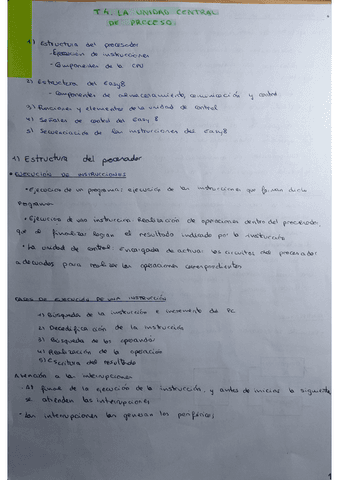 T4. LA UNIDAD CENTRAL
DE PROCESO:
1) Estructura del procesador
- Ejecución de instrucciones
- Componentes de la CPU
2) Estructura del Easy8
- Componentes de almacenamiento, comunicación y control
3) Funciones y elementos de la unidad de control
4) Señales de control del Easy 8
5) Secuenciación de las instrucciones del Easy8
1) Estructura del procesador
• EJECUCIÓN DE INSTRUCCIONES
• Ejecución de un programa: ejecución de las instrucciones que forman dicho
programa
• Ejecución de una instrucción: Realización de operaciones dentro del procesador,
que al finalizar logran el resultado indicado por la instrucción
• La unidad de control: Encargada de activar los circuitos del procesador
adecuados para realizar las operaciones correspondientes
FASES DE EJECUCIÓN DE UNA INSTRUCCIÓN
1) Búsqueda de la instrucción e incremento de PC
2) Decodificación de la instrucción
3) Búsqueda de los operandos
4) Realización de la operación
5) Escritura del resultado
Atención a las interrupciones
• Al final de la ejecución de la instrucción, y antes de iniciar la siguiente
se atienden las interrupciones
• Las interrupciones las generan los periféricos
1